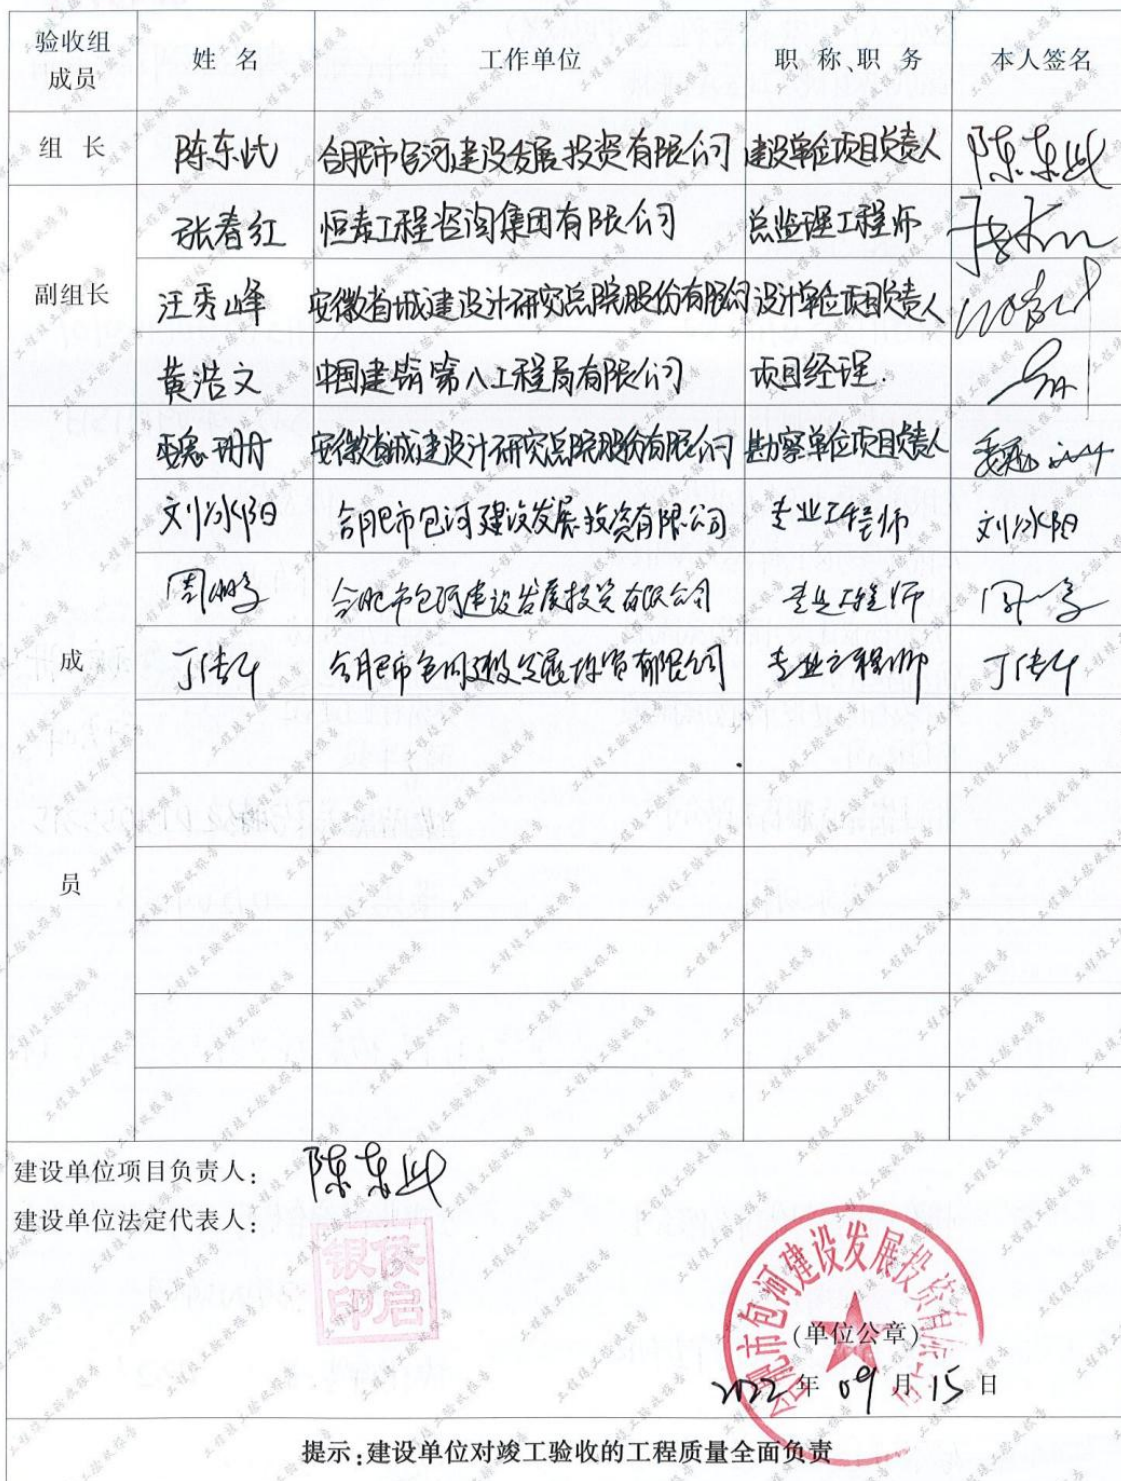 验收组成员 姓名 工作单位 职称、职务 本人签名
组长 陈东此 合肥市包河建设发展投资有限公司 建设单位项目负责人 陈东此
张春红 恒泰工程咨询集团有限公司 总监理工程师
副组长 汪秀峰 安徽省城建设计研究总院股份有限公司 设计单位项目负责人
黄浩文 中国建筑第八工程局有限公司 项目经理.
魏丹丹 安徽省城建设计研究总院股份有限公司 勘察单位项目负责人
刘冰阳 合肥市包河建设发展投资有限公司 专业工程师 刘冰阳
周鹏 合肥市包河建设发展投资有限公司 专业工程师
成 丁传 合肥市包河建设发展投资有限公司 专业工程师 丁传
员
建设单位项目负责人: 陈东此
建设单位法定代表人:
侯启银印
合肥市包河建设发展投资有限公司
(单位公章)
2022年09月15日
提示:建设单位对竣工验收的工程质量全面负责
工程竣工验收报告